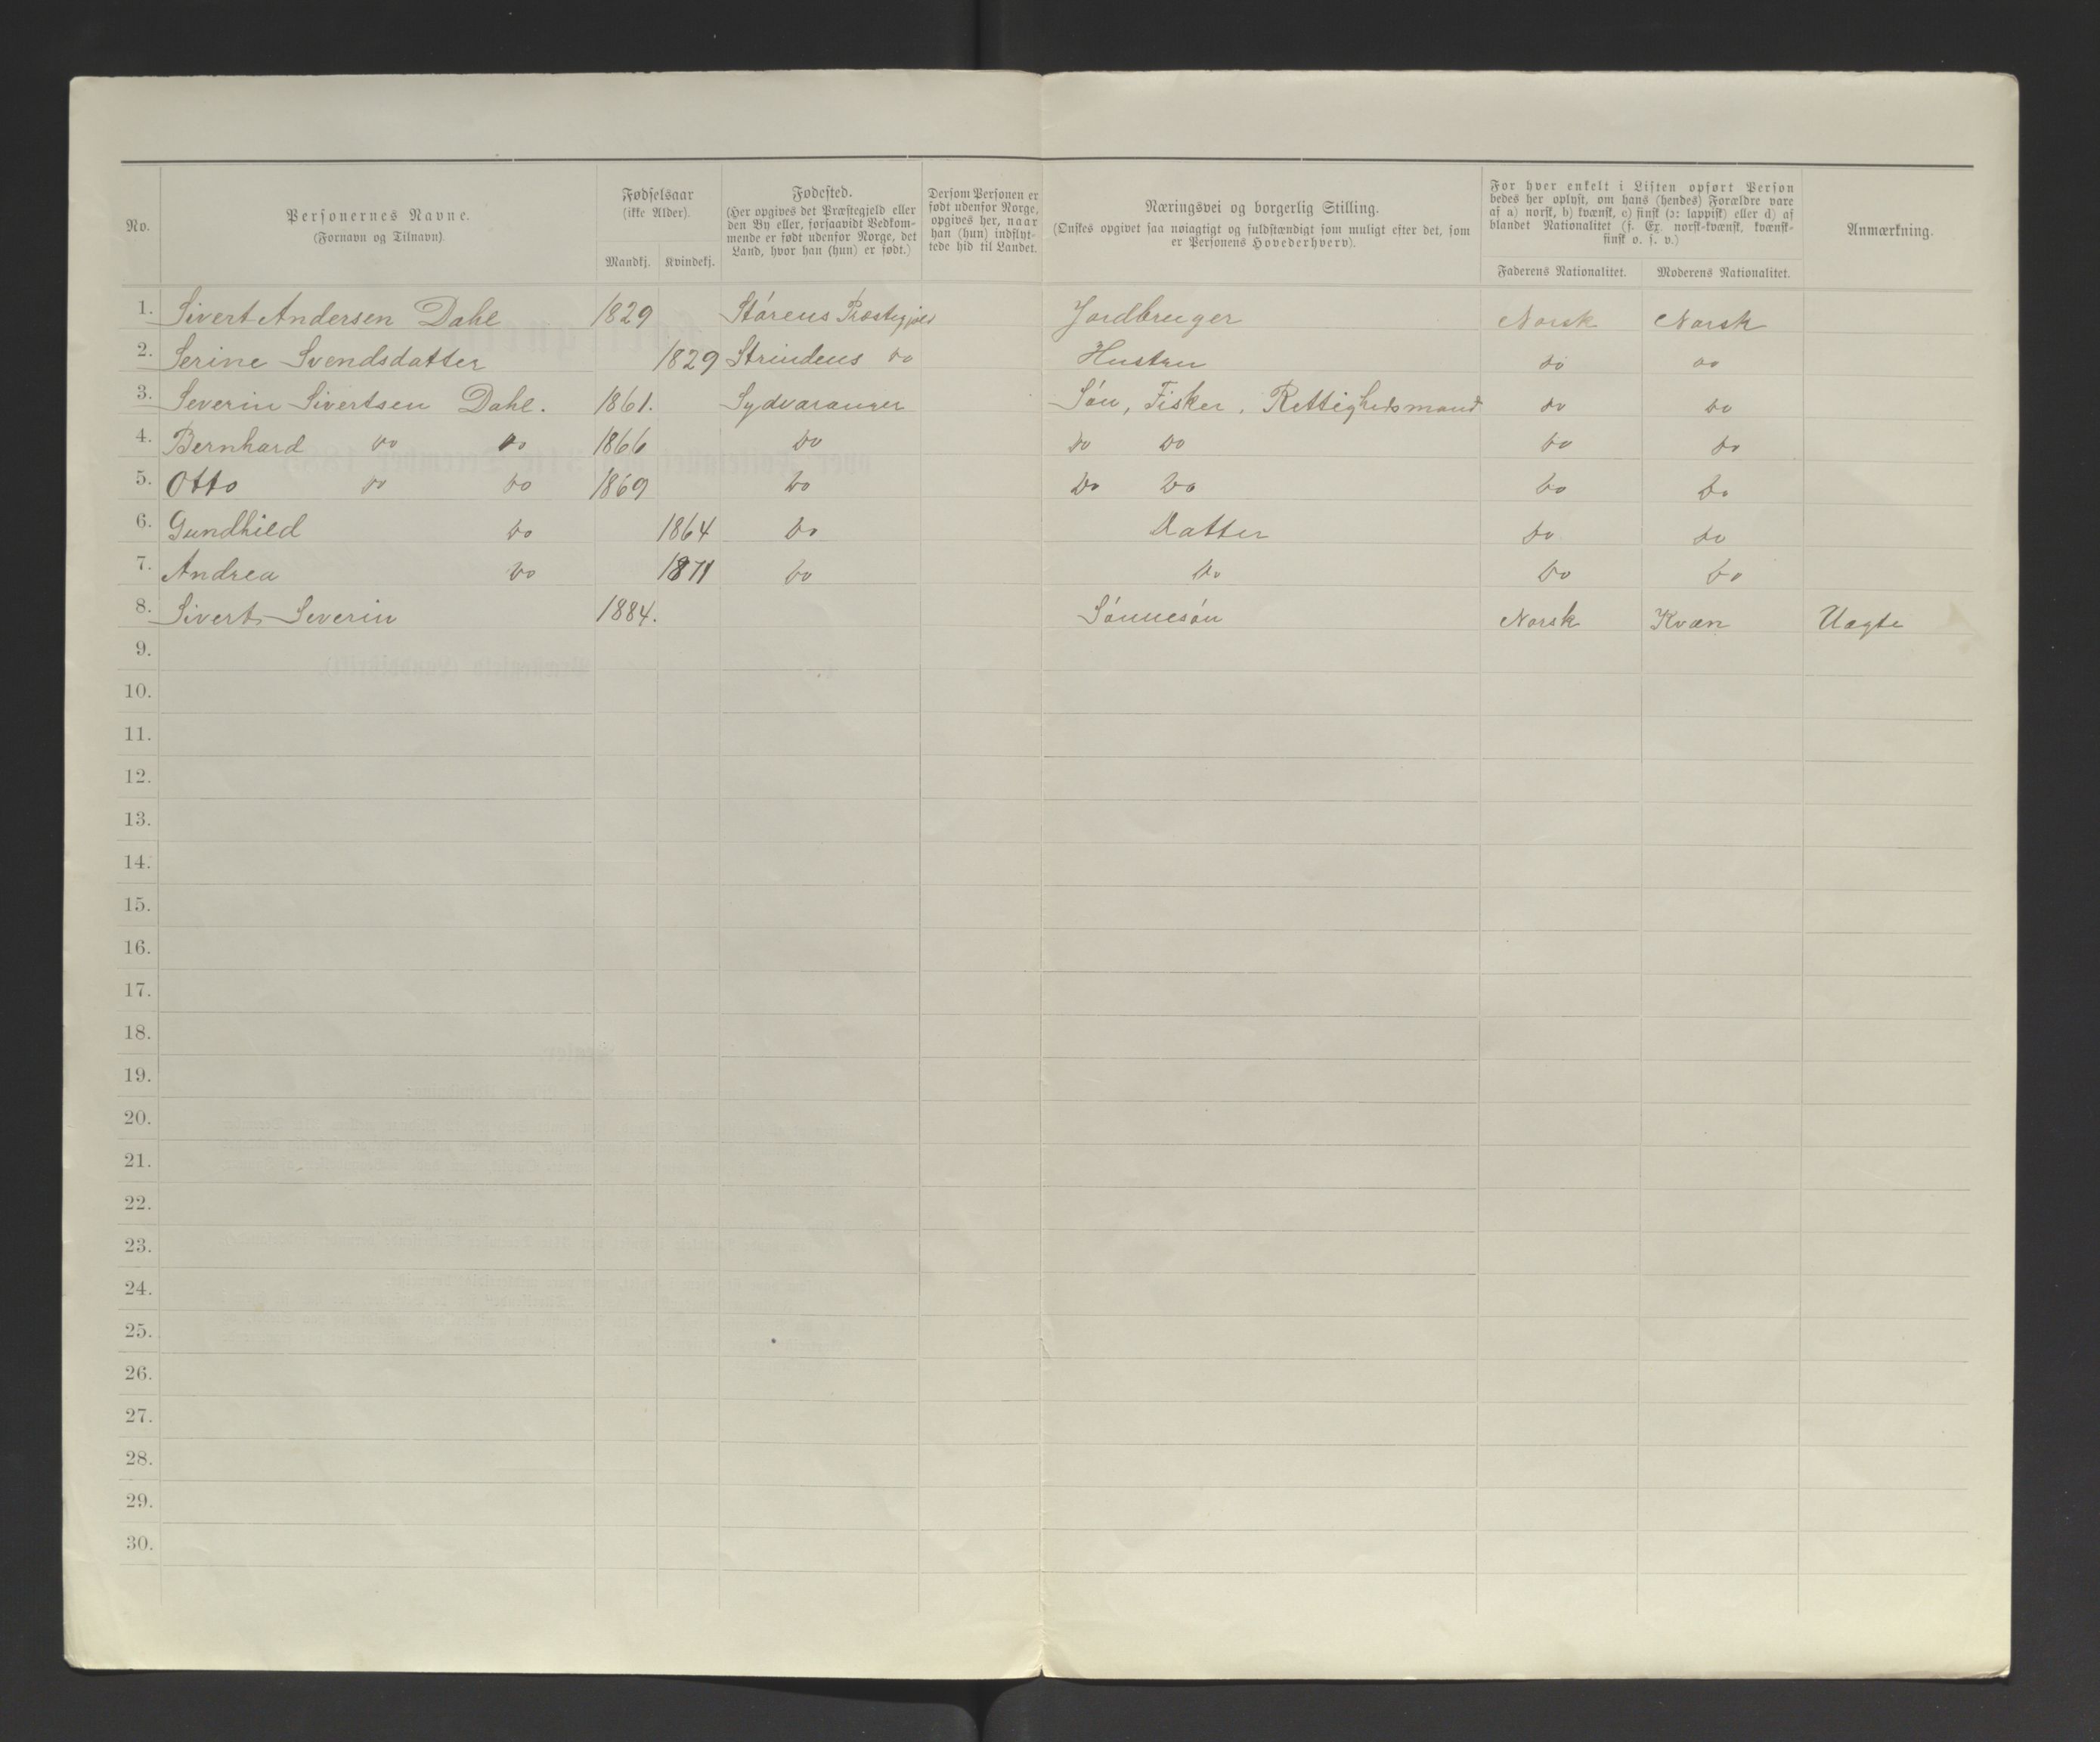 No.
Personernes Navne.
(Fornavn og Tilnavn)
Fødselsaar
(ikke Alder).
Mandkj. Kvindekj.
Fødested.
(Her opgives det Præstegjeld eller
den By eller, forsaavidt Vedkom-
mende er født udenfor Norge, det
Land, hvor han (hun) er født.)
Dersom Personen er
født udenfor Norge,
opgives her, naar
han (hun) indflyt-
tede hid til Landet.
Næringsvei og borgerlig Stilling.
(Ønskes opgivet saa nøiagtigt og fuldstændigt som muligt efter det, som
er Personens Hovederhverv).
For hver enkelt i Listen opført Person
bedes her oplyst, om hans (hendes) Forældre vare
af a) norsk, b) kvænsk, c) finsk (ɔ: lappisk) eller d) af
blandet Nationalitet (f. Ex. norsk-kvænsk, kvænsk-
finsk o. s. v.)
Faderens Nationalitet. Moderens Nationalitet.
Anmærkning.
1. Sivert Andersen Dahl 1829 Størens Præstegjeld Jordbruger Norsk Norsk
2. Serine Svendsdatter 1829 Strindens do Hustru do do
3. Severin Sivertsen Dahl. 1861. Sydvaranger Søn, Fisker, Rettighedsmand do do
4. Bernhard do do 1866 do do do do do
5. Otto do do 1869 do do do do do
6. Gundhild do 1864 do Datter do do
7. Andrea do 1871 do do do do
8. Sivert Severin 1884. Sønnesøn Norsk Kvæn Uægte
9.
10.
11.
12.
13.
14.
15.
16.
17.
18.
19.
20.
21.
22.
23.
24.
25.
26.
27.
28.
29.
30.